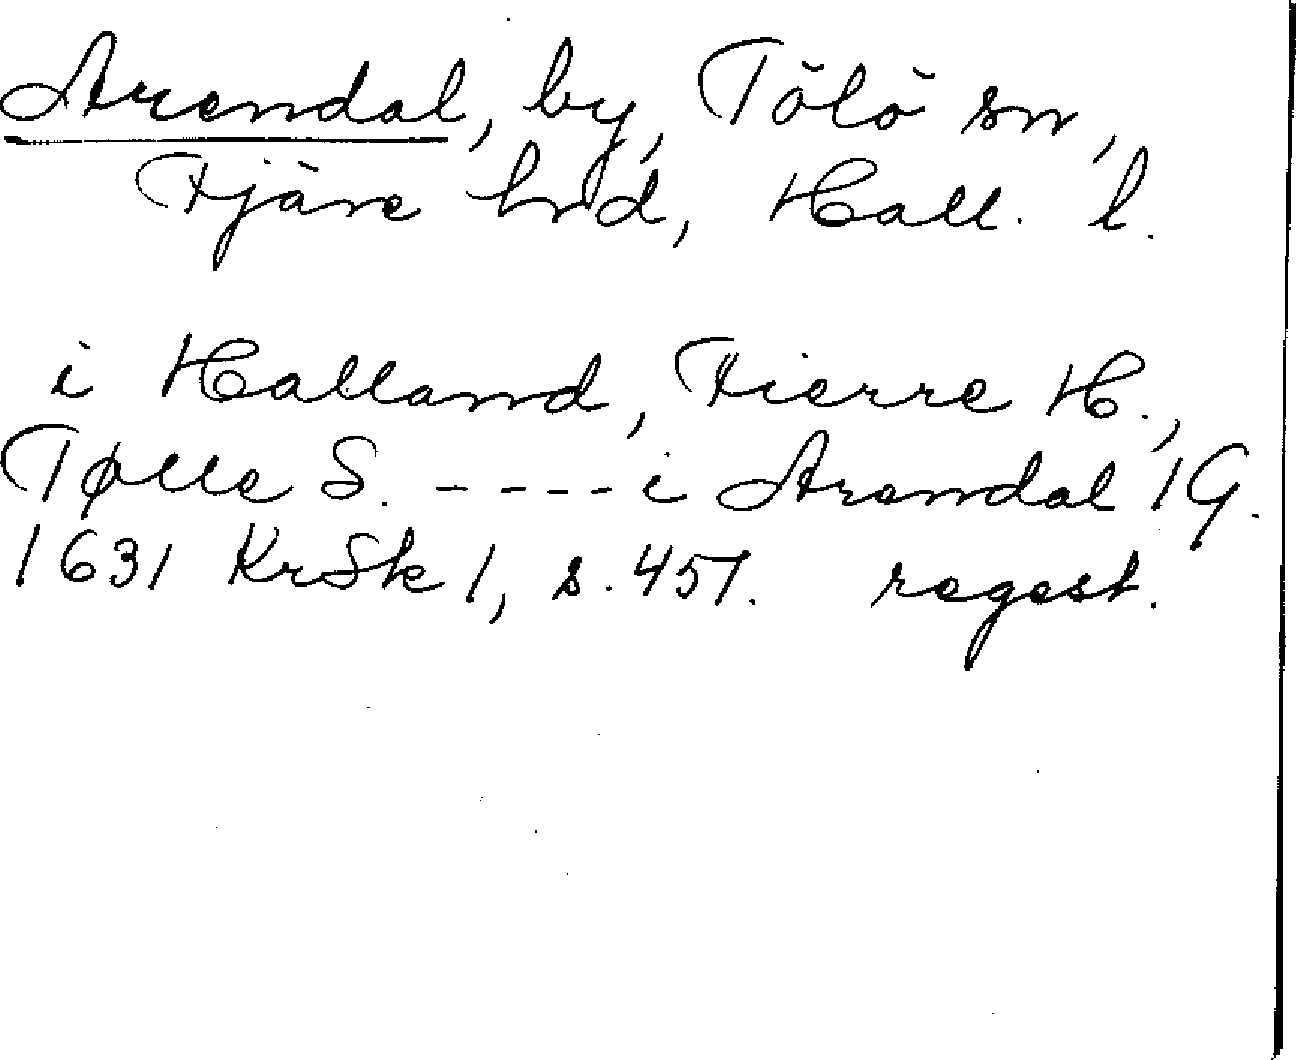 Arendal, by, Tölö sn,
Fjäre hrd, Hall. l.
i Halland, Fierre H.,
Tølle S. ---- i Arendal 1 G.
1631 KrSk 1, s. 457. regest.